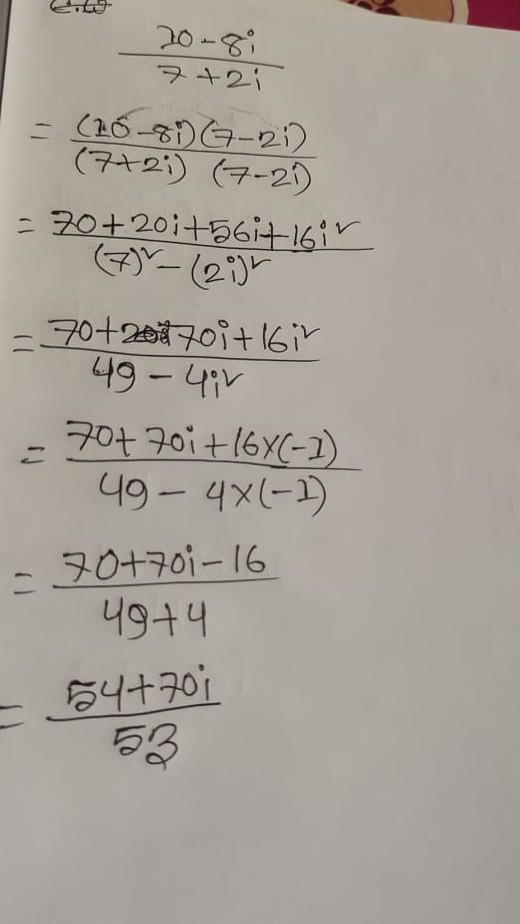 10-8i
7+2i
= (10-8i)(7-2i)
(7+2i) (7-2i)
= 70+20i+56i+16i²
(7)² - (2i)²
= 70+70i+16i²
49 - 4i²
= 70+70i+16×(-1)
49 - 4×(-1)
= 70+70i-16
49+4
= 54+70i
53